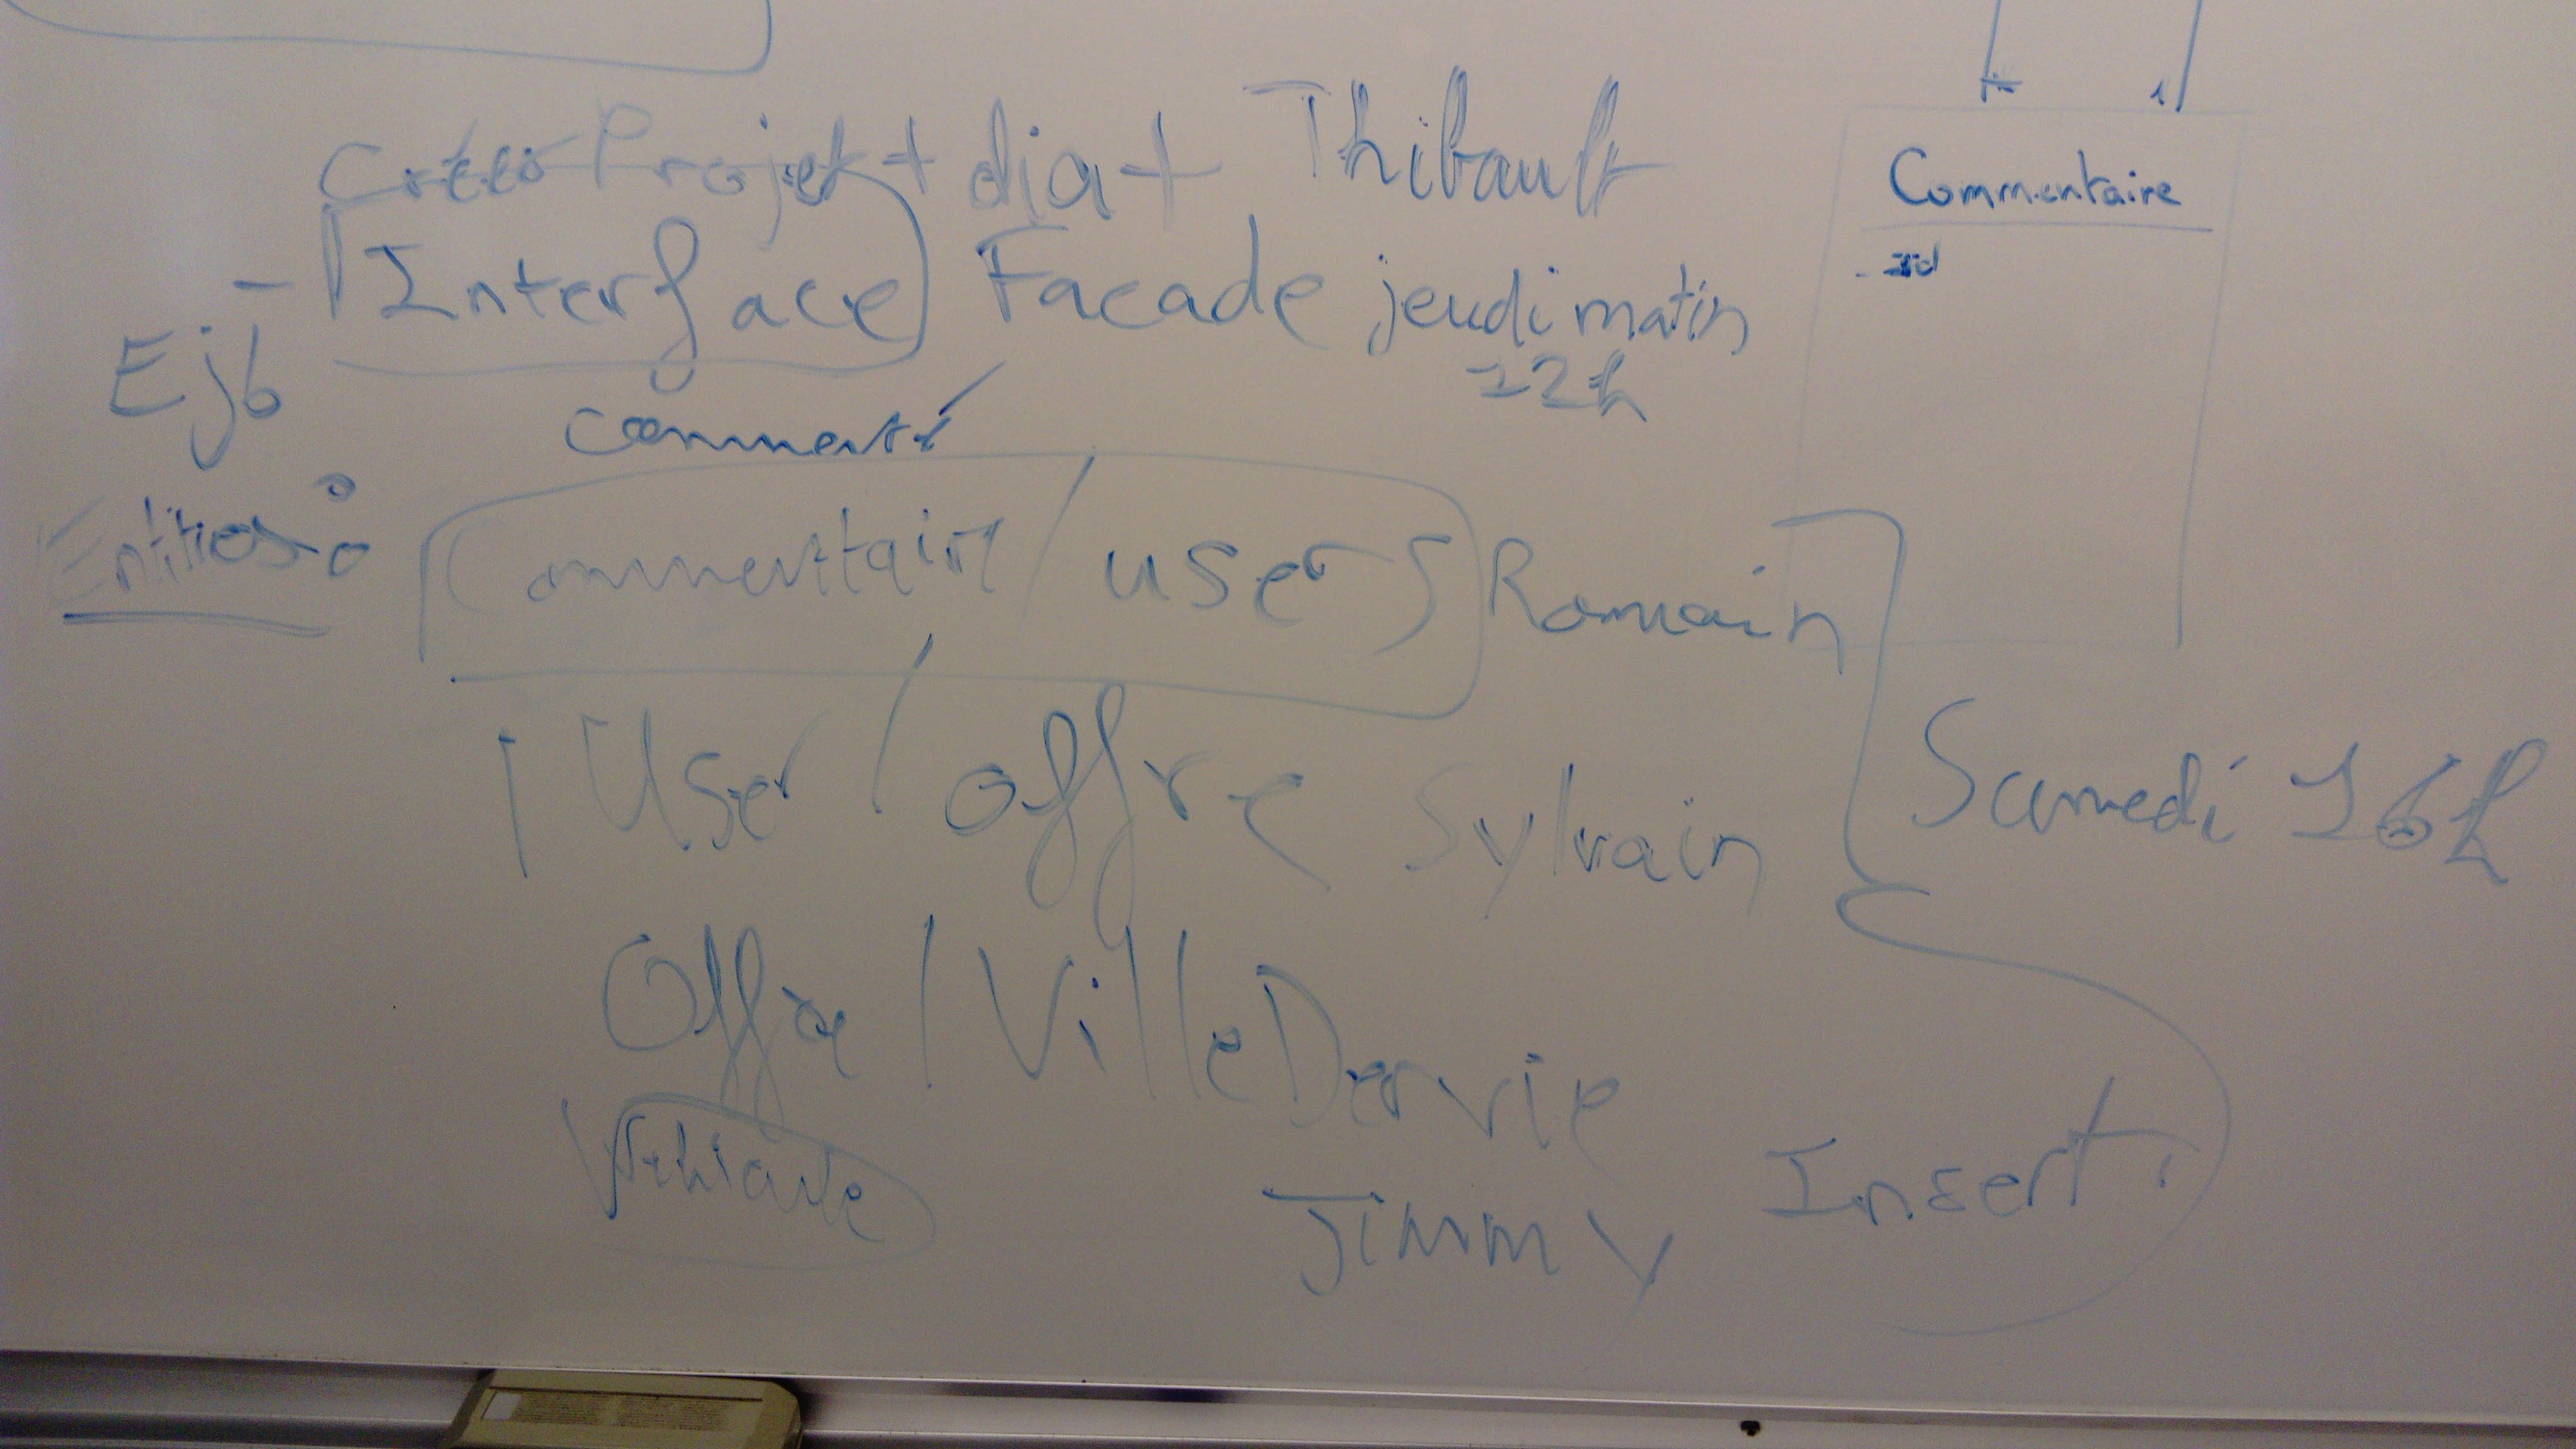 Projet + dia + Thibault
- Interface Facade jeudi matin
12h
Ejb
commenté
Entities :
Commentaire / user Romain
User / offre Sylvain
Samedi 16h
Offre / Ville Dervie
Vehicule
Jimmy
Insert
* 1
Commentaire
- id